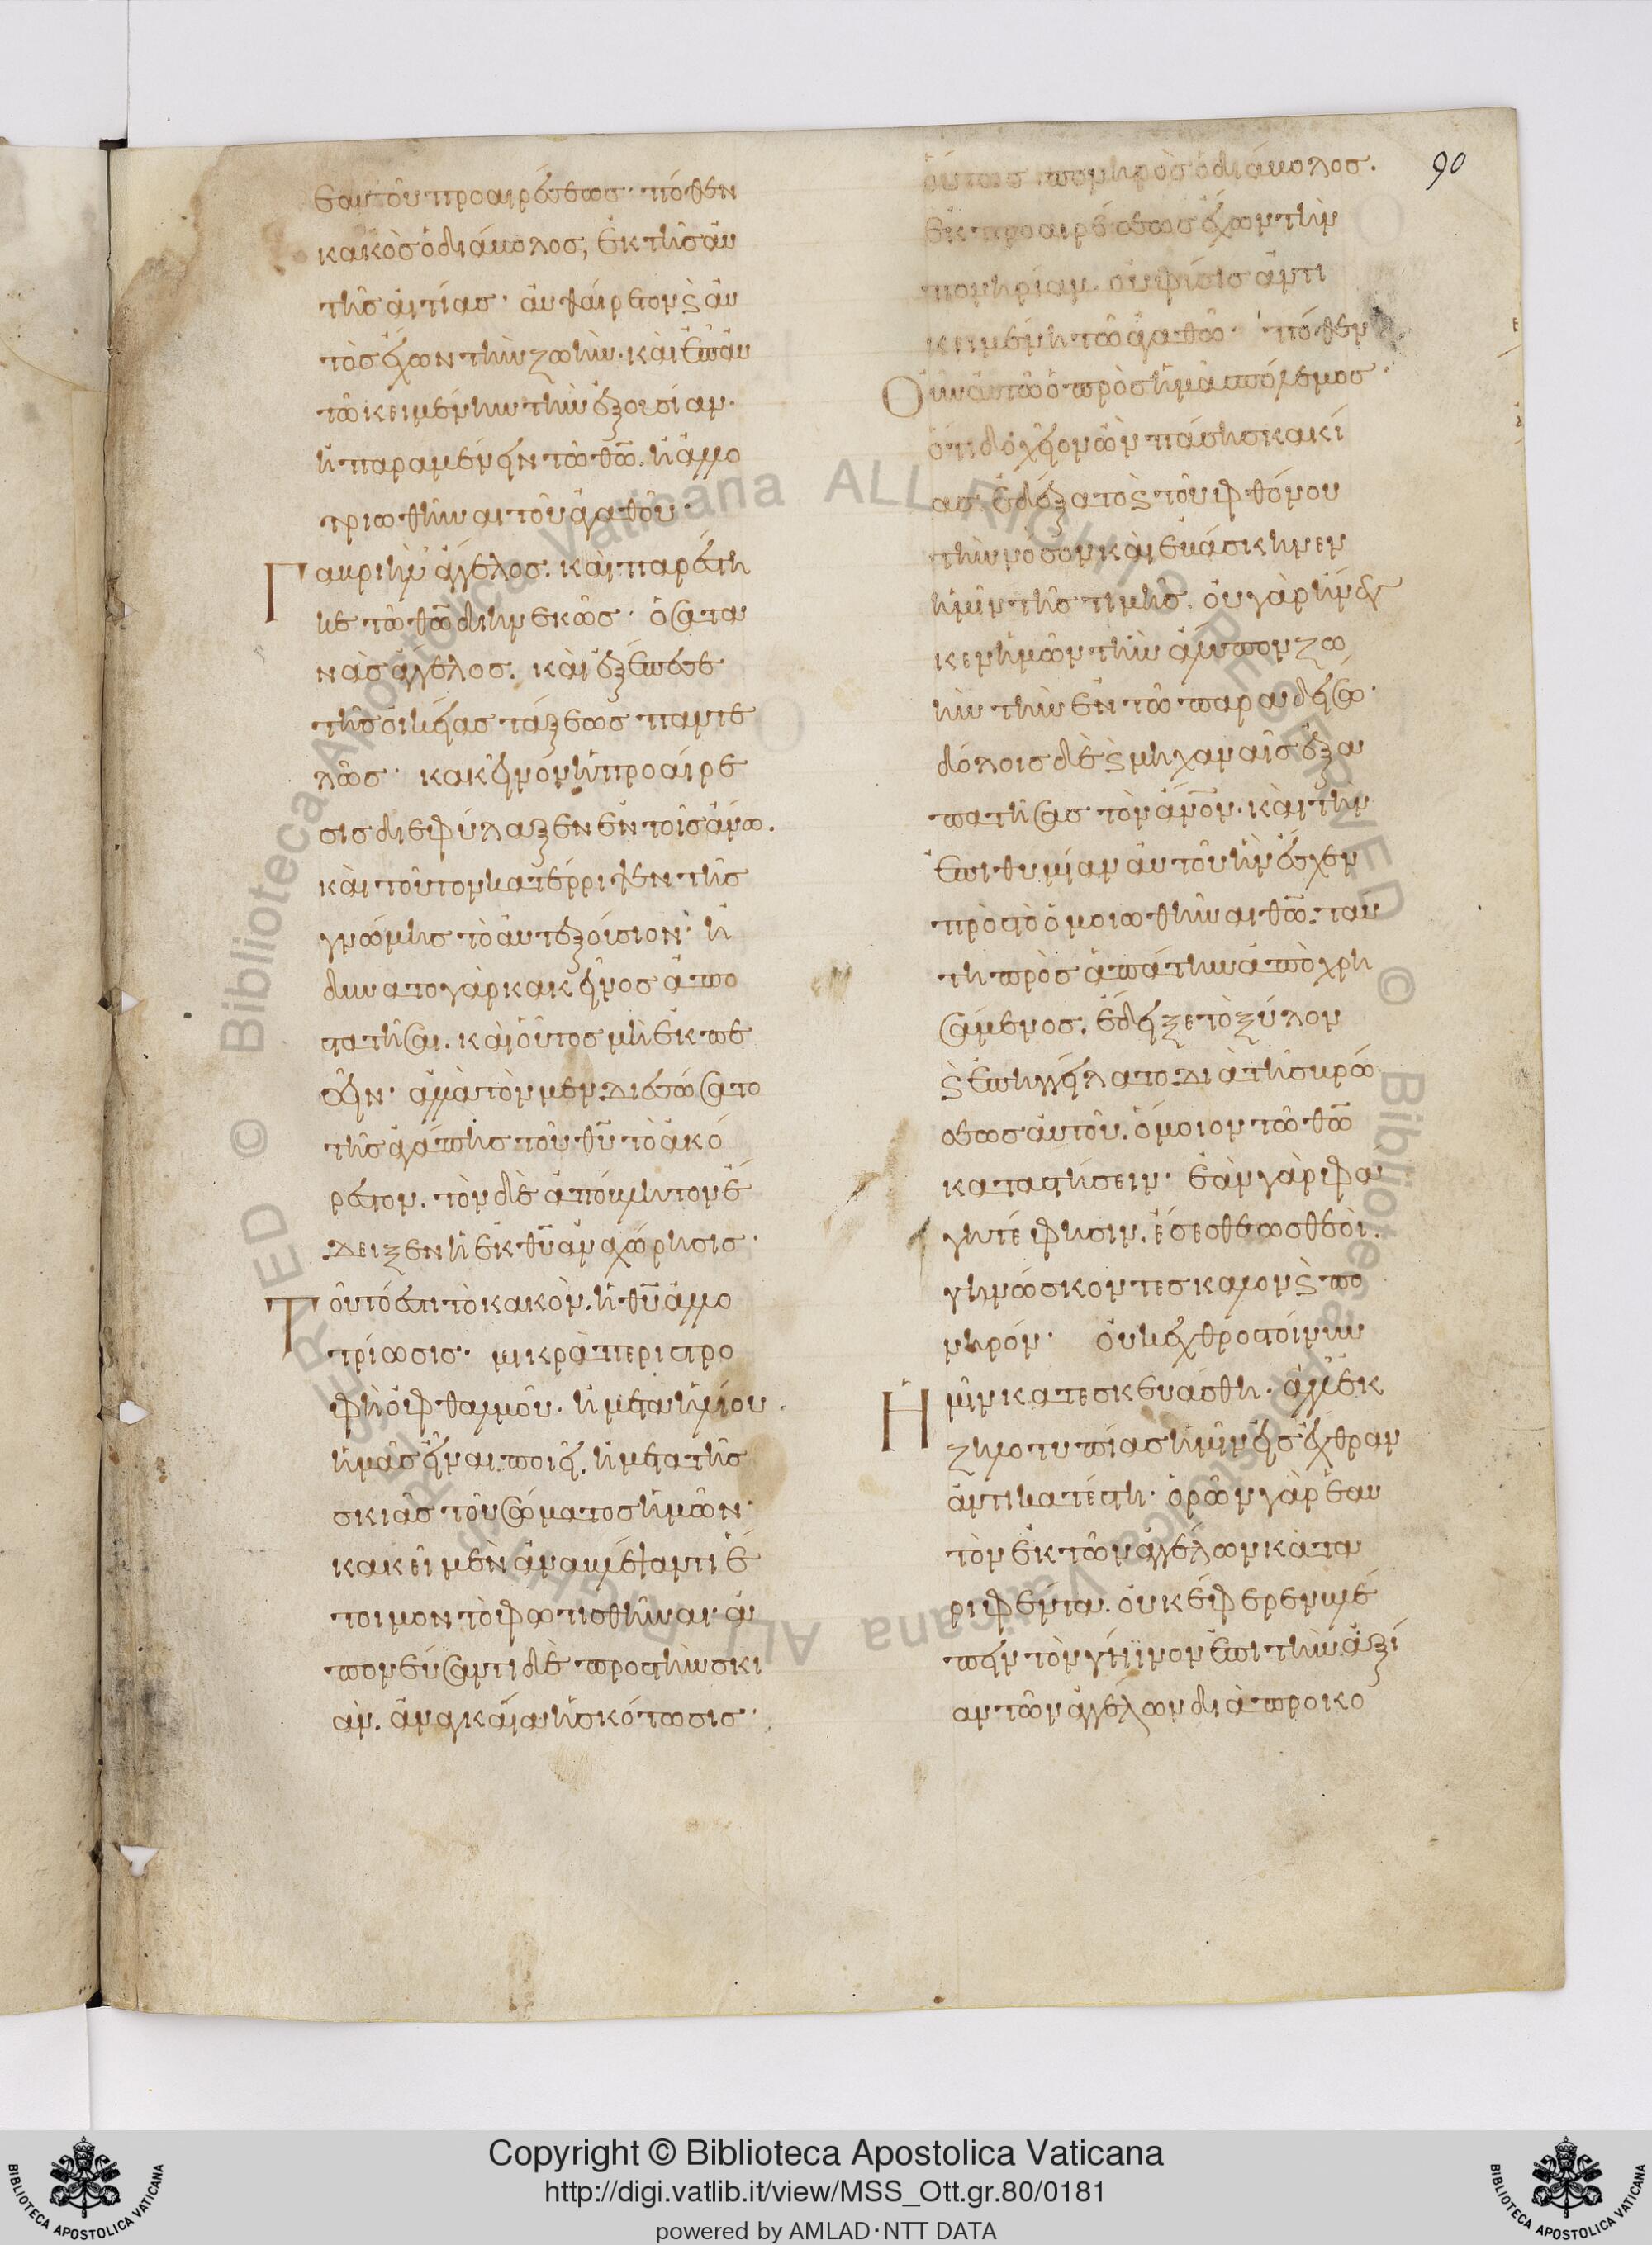 90
ἑαυτοῦ προαιρέσεως· πόθεν
κακὸς ὁ διάβολος; ἐκ τῆς αὐ
τῆς αἰτίας· αὐθαίρετον ϗ αὐ
τὸς ἔχων τὴν ζωὴν· καὶ ἐπ' αὐ
τῶ κειμένην τὴν ἐξουσίαν·
ἢ παραμένειν τῶ θῶ. ἢ ἀλλο
τριωθῆναι τοῦ ἀγαθοῦ·
Γαβριὴλ ἄγγελος. καὶ παρέστη
κε τῶ θῶ διηνεκῶς· ὁ σατα
νὰς ἄγγελος. καὶ ἐξέπεσε
τῆς οἰκείας τάξεως παντε
λῶς· κακεῖνον ἡ προαίρε
σις διεφύλαξεν ἐν τοῖς ἄνω.
καὶ τοῦτον κατέρριψεν τῆς
γνώμης τὸ αὐτεξούσιον· ἠ
δυνατο γὰρ κακεῖνος ἀπο
στατῆσαι. καὶ οὗτος μὴ ἐκπε
σεῖν· ἀλλὰ τὸν μεν διεσώσατο
τῆς ἀγάπης τοῦ θῦ τὸ ἀκό
ρεστον. τὸν δὲ ἀπόβλητον ἔ
δειξεν ἡ ἐκ θῦ ἀναχώρησις·
Τοῦτό ἐστι τὸ κακὸν. ἡ θῦ ἀλλο
τρίωσις· μικρὰ περιστρο
φὴ ὀφθαλμοῦ. ἢ μετα ἡλίου
ἡμᾶς εἶναι ποιεῖ. ἢ μετα τῆς
σκιᾶς τοῦ σώματος ἡμῶν·
κακεῖ μὲν ἀναβλέψαντι ἕ
τοιμον τὸ φωτισθῆναι· ἀ
πονεύσαντι δὲ προς τὴν σκι
ὰν. ἀναγκαία ἡ σκότωσις·
οὕτως πονηρὸς ὁ διάβολος.
ἐκ προαιρέσεως ἔχων τὴν
πονηρίαν. οὐ φύσις ἀντι
κειμένη τῶ ἀγαθῶ· πόθεν
Οὖν αὐτῶ ὁ πρὸς ἡμᾶς πόλεμος·
ὅτι δοχεῖον ὢν πάσης κακί
ας. ἐδέξατο ϗ τοῦ φθόνου
τὴν νόσον καὶ ἐβάσκηνεν
ἡμῖν τῆς τιμῆς. οὐ γὰρ ἤνεγ
κεν ἡμῶν τὴν ἄλυπον ζω
ὴν τὴν ἐν τῶ παραδείσω·
δόλοις δὲ ϗ μηχαναῖς ἐξα
πατήσας τὸν ἄνον· καὶ τῆ
ἐπιθυμίαν αὐτοῦ ἣν ἔσχεν
πρὸς τὸ ὁμοιωθῆναι θῶ. ταύ
τη πρὸς ἀπάτην ἀποχρη
σάμενος. ἔδειξε τὸ ξύλον
ϗ ἐπηγγείλατο διὰ τῆς βρώ
σεως αὐτοῦ. ὅμοιον τῶ θῶ
καταστήσειν· ἐὰν γὰρ φα
γητέ φησιν. ἔσεσθε ὡς θεοὶ.
γηνώσκοντες καλον ϗ πο
νηρόν· οὐκ ἐχθρος τοίνυν
Ἡμῖν κατεσκευάσθη. ἀλλ' ἐκ
ζηλοτυπίας ἡμῖν εἰς ἔχθραν
ἀντικατέστη· ὁρῶν γὰρ ἑαυ
τὸν ἐκ τῶν ἀγγέλων κατα
ριφέντα. οὐκ ἔφερεν βλέ
πειν τὸν γήϊνον ἐπι τὴν ἀξί
αν τῶν ἀγγέλων διὰ προκο
Copyright © Biblioteca Apostolica Vaticana
http://digi.vatlib.it/view/MSS_Ott.gr.80/0181
powered by AMLAD·NTT DATA
BIBLIOTECA APOSTOLICA VATICANA
BIBLIOTECA APOSTOLICA VATICANA